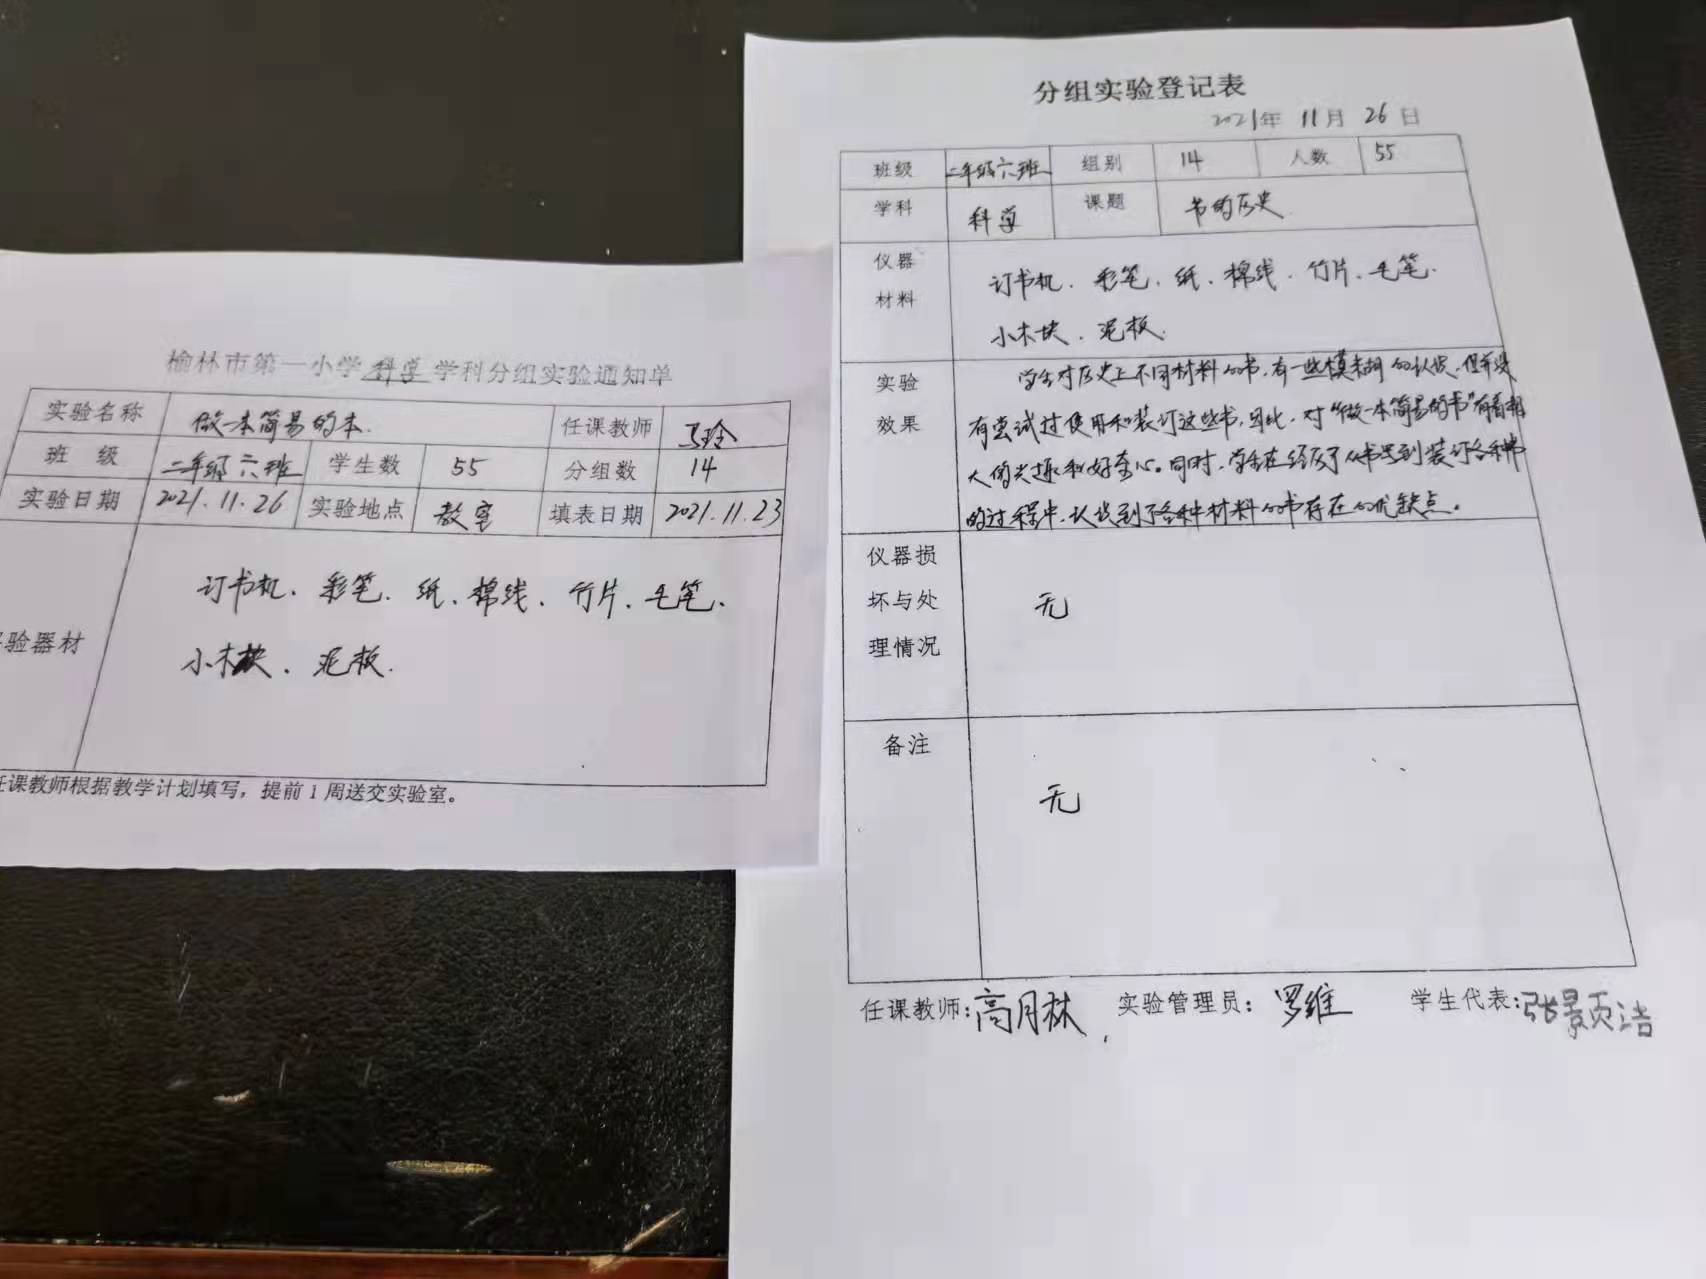 榆林市第一小学 科学 学科分组实验通知单
实验名称 做一本简易的本. 任课教师 马玲
班 级 二年级六班 学生数 55 分组数 14
实验日期 2021.11.26 实验地点 教室 填表日期 2021.11.23
验器材 订书机、彩笔、纸、棉线、竹片、毛笔、
小木块、泥板.
任课教师根据教学计划填写，提前1周送交实验室。
分组实验登记表
2021年 11月 26日
班级 二年级六班 组别 14 人数 55
学科 科学 课题 书的历史
仪器 订书机、彩笔、纸、棉线、竹片、毛笔、
材料 小木块、泥板.
实验 学生对历史上不同材料的书，有一些模糊的认识，但并没
效果 有尝试过使用和装订这些书，因此，对“做一本简易的书”有着相
大的兴趣和好奇心。同时，学生在经历了从书写到装订各种书
的过程中，认识到了各种材料的书存在的优缺点。
仪器损
坏与处 无
理情况
备注
无
任课教师：高月林 实验管理员：罗维 学生代表：张景页浩